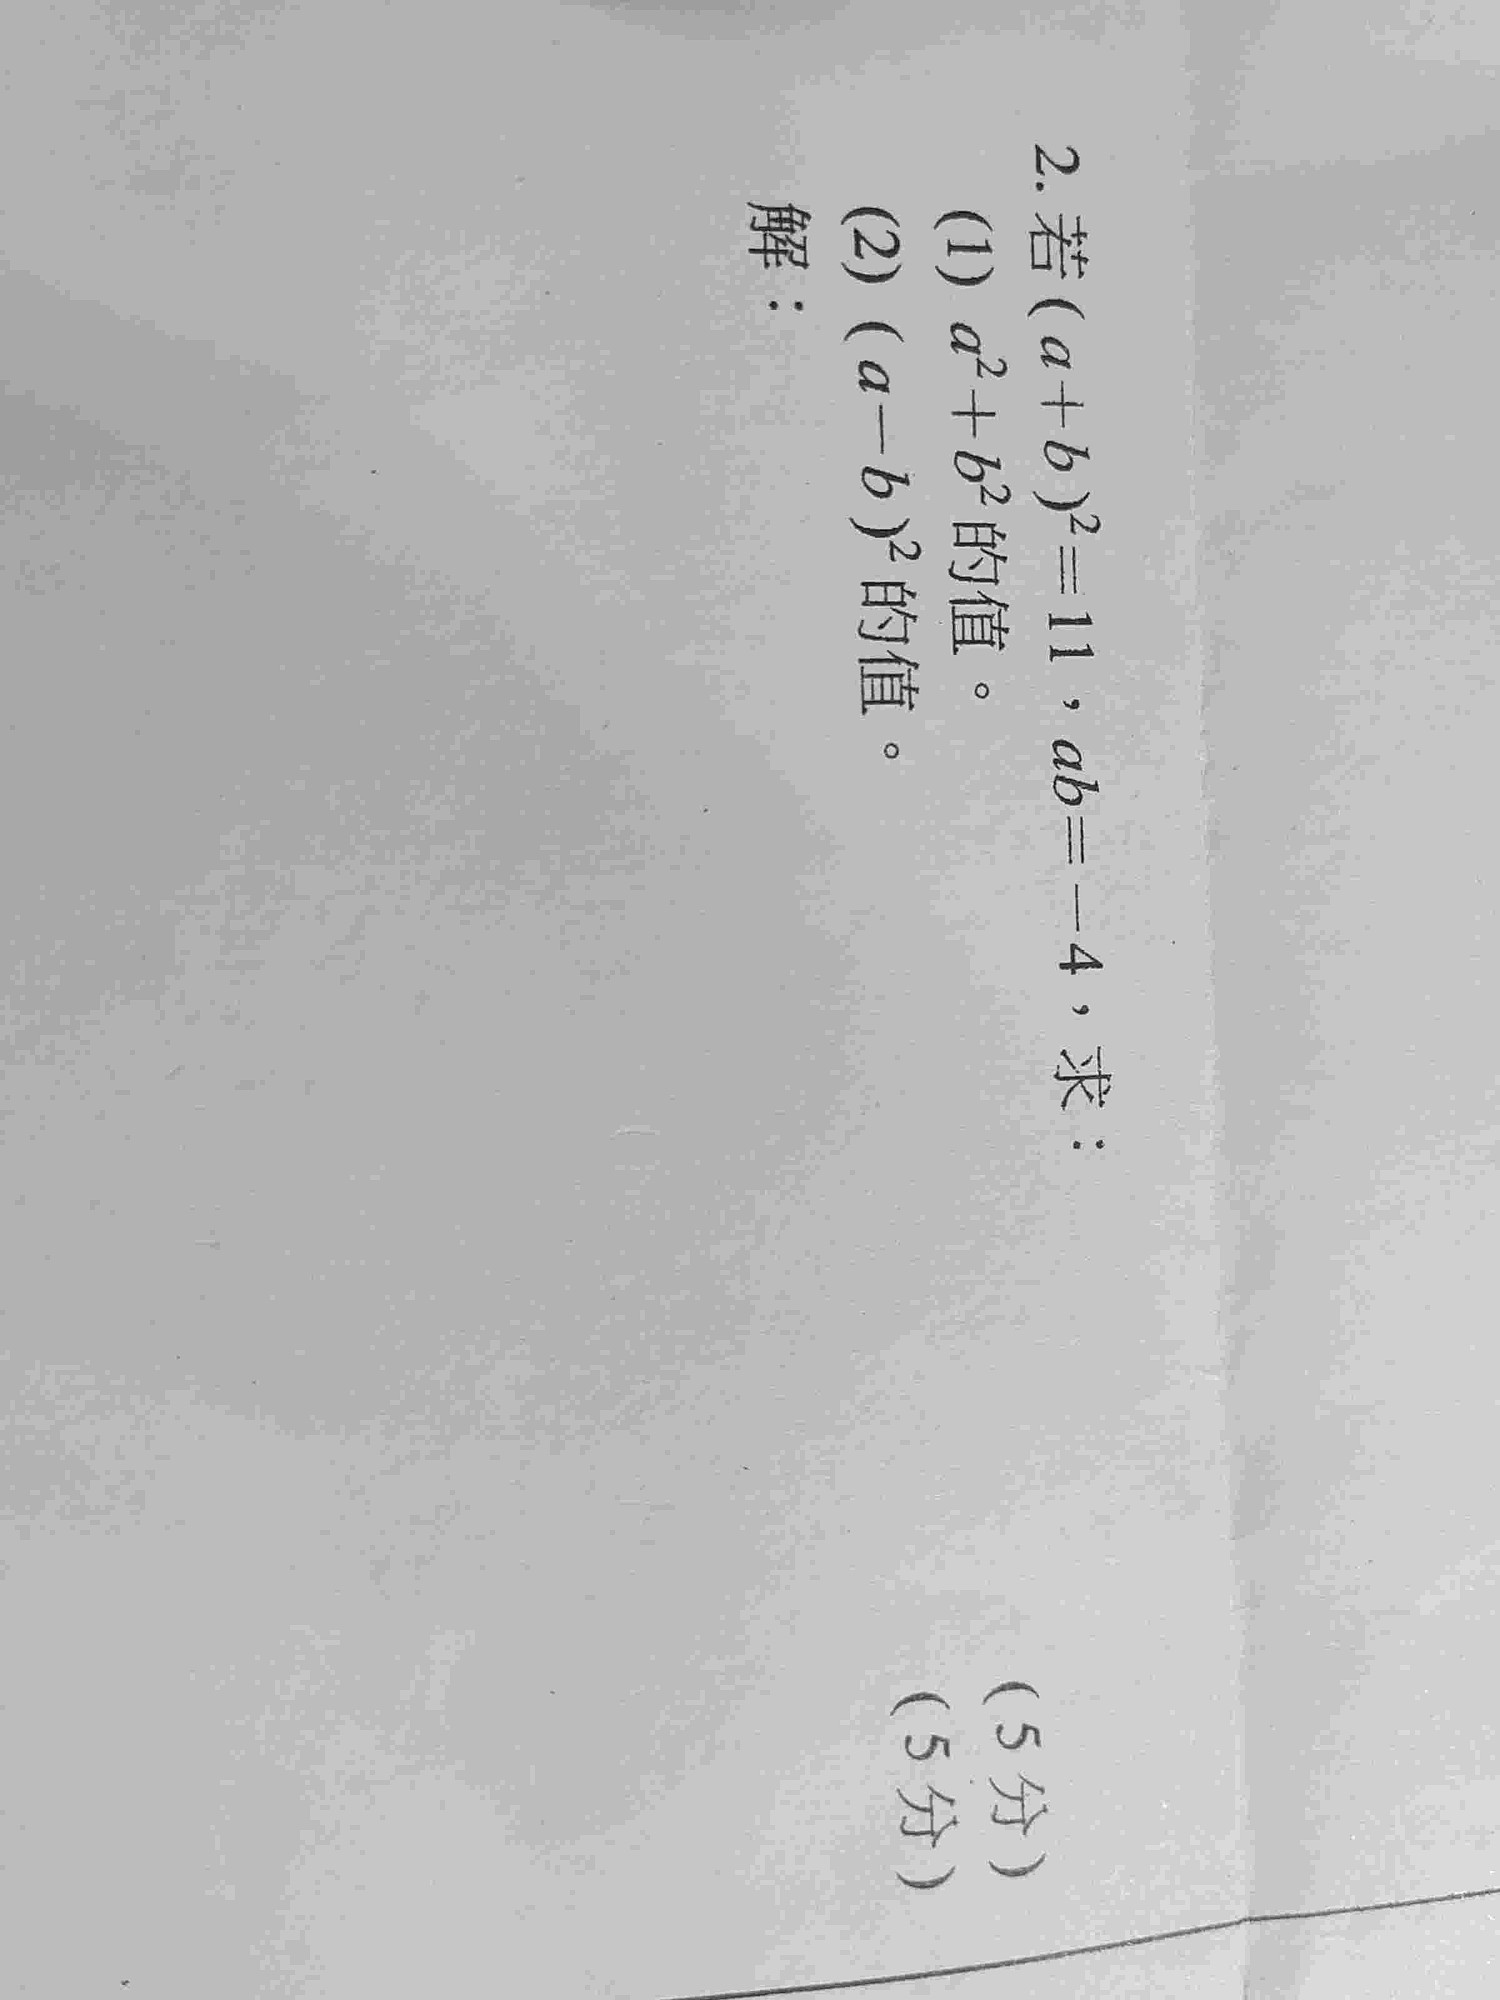 2. 若(a+b)²=11，ab=－4，求：
(1) a²+b²的值。 (5分)
(2) (a－b)²的值。 (5分)
解：